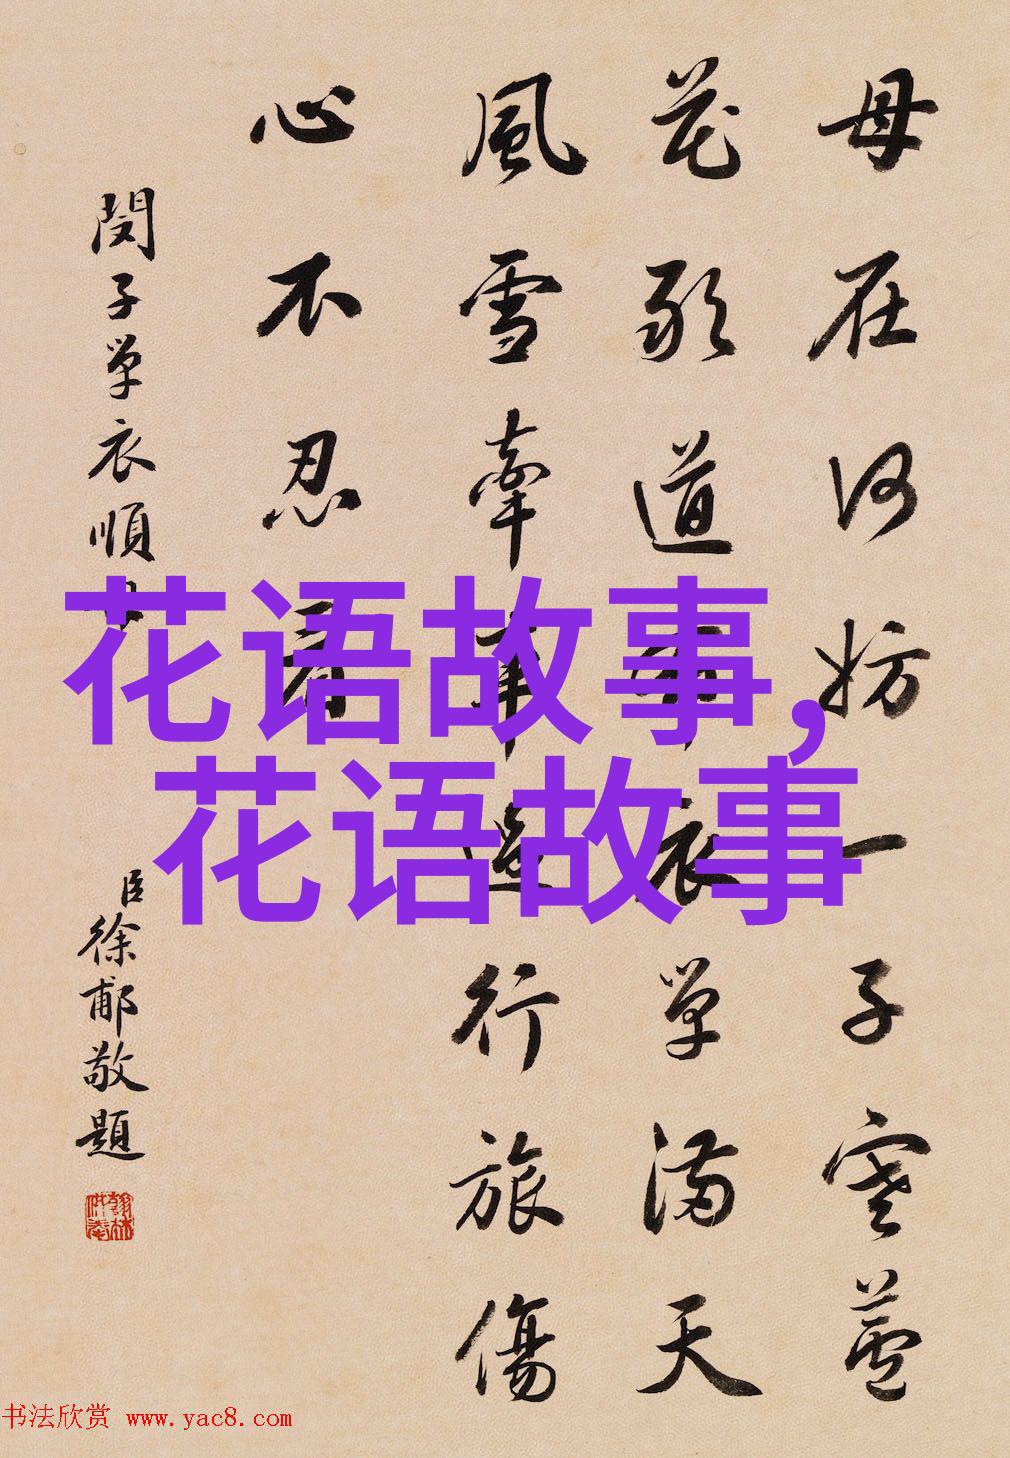 母在何妨一子寒蘆
花敢道衣單滿天
風雪牽車行旅傷
心不忍看
閔子單衣順
臣徐郙敬題
花语故事，
花语故事
书法欣赏 www.yac8.com